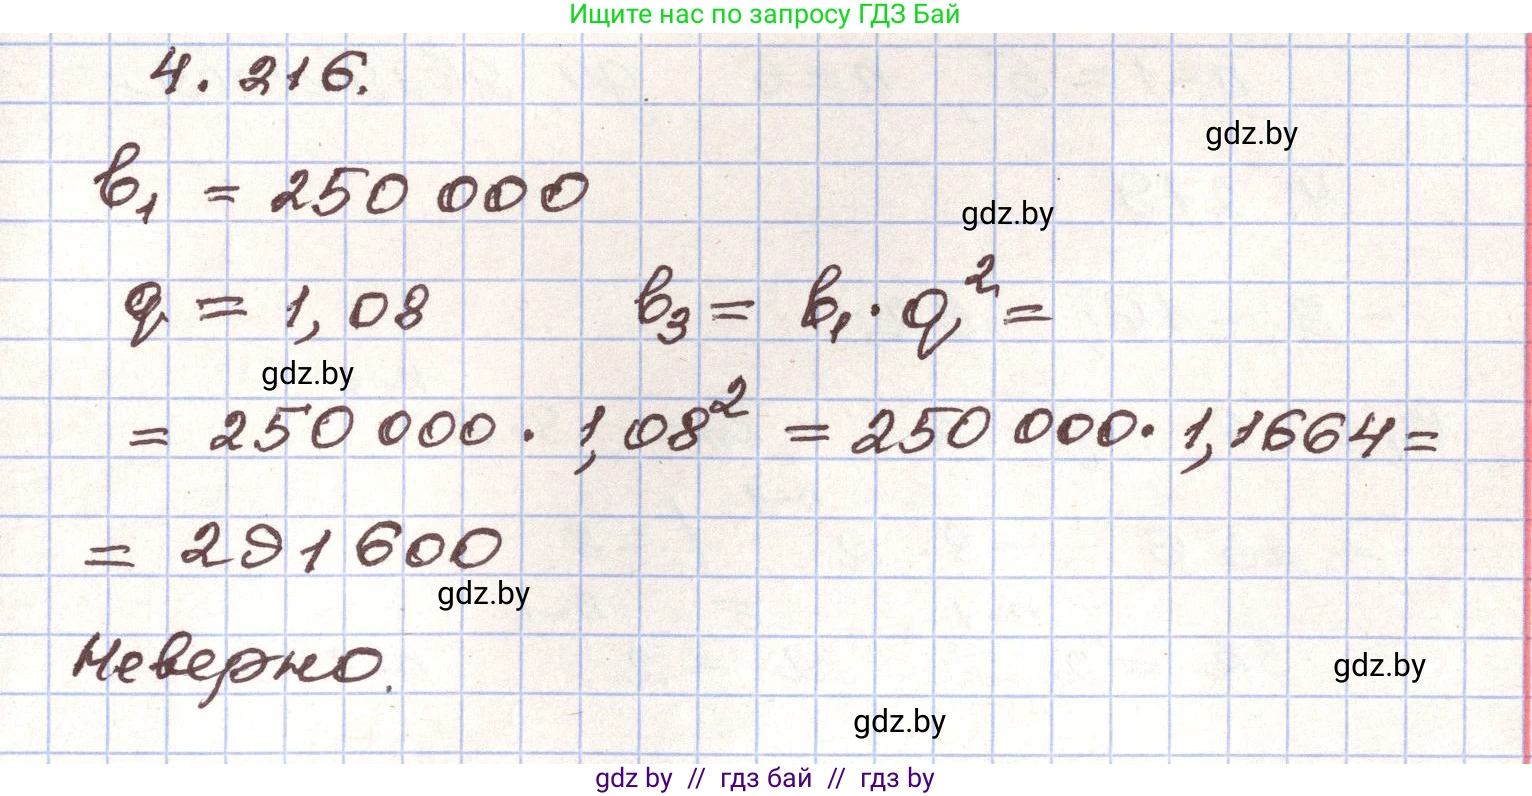 Ищите нас по запросу ГДЗ Бай
4.216.
gdz.by
b₁ = 250 000
gdz.by
q = 1,08 b₃ = b₁ · q² =
gdz.by
= 250 000 · 1,08² = 250 000 · 1,1664 =
= 291 600
gdz.by
Неверно.
gdz.by
gdz.by
gdz by // гдз бай // гдз by